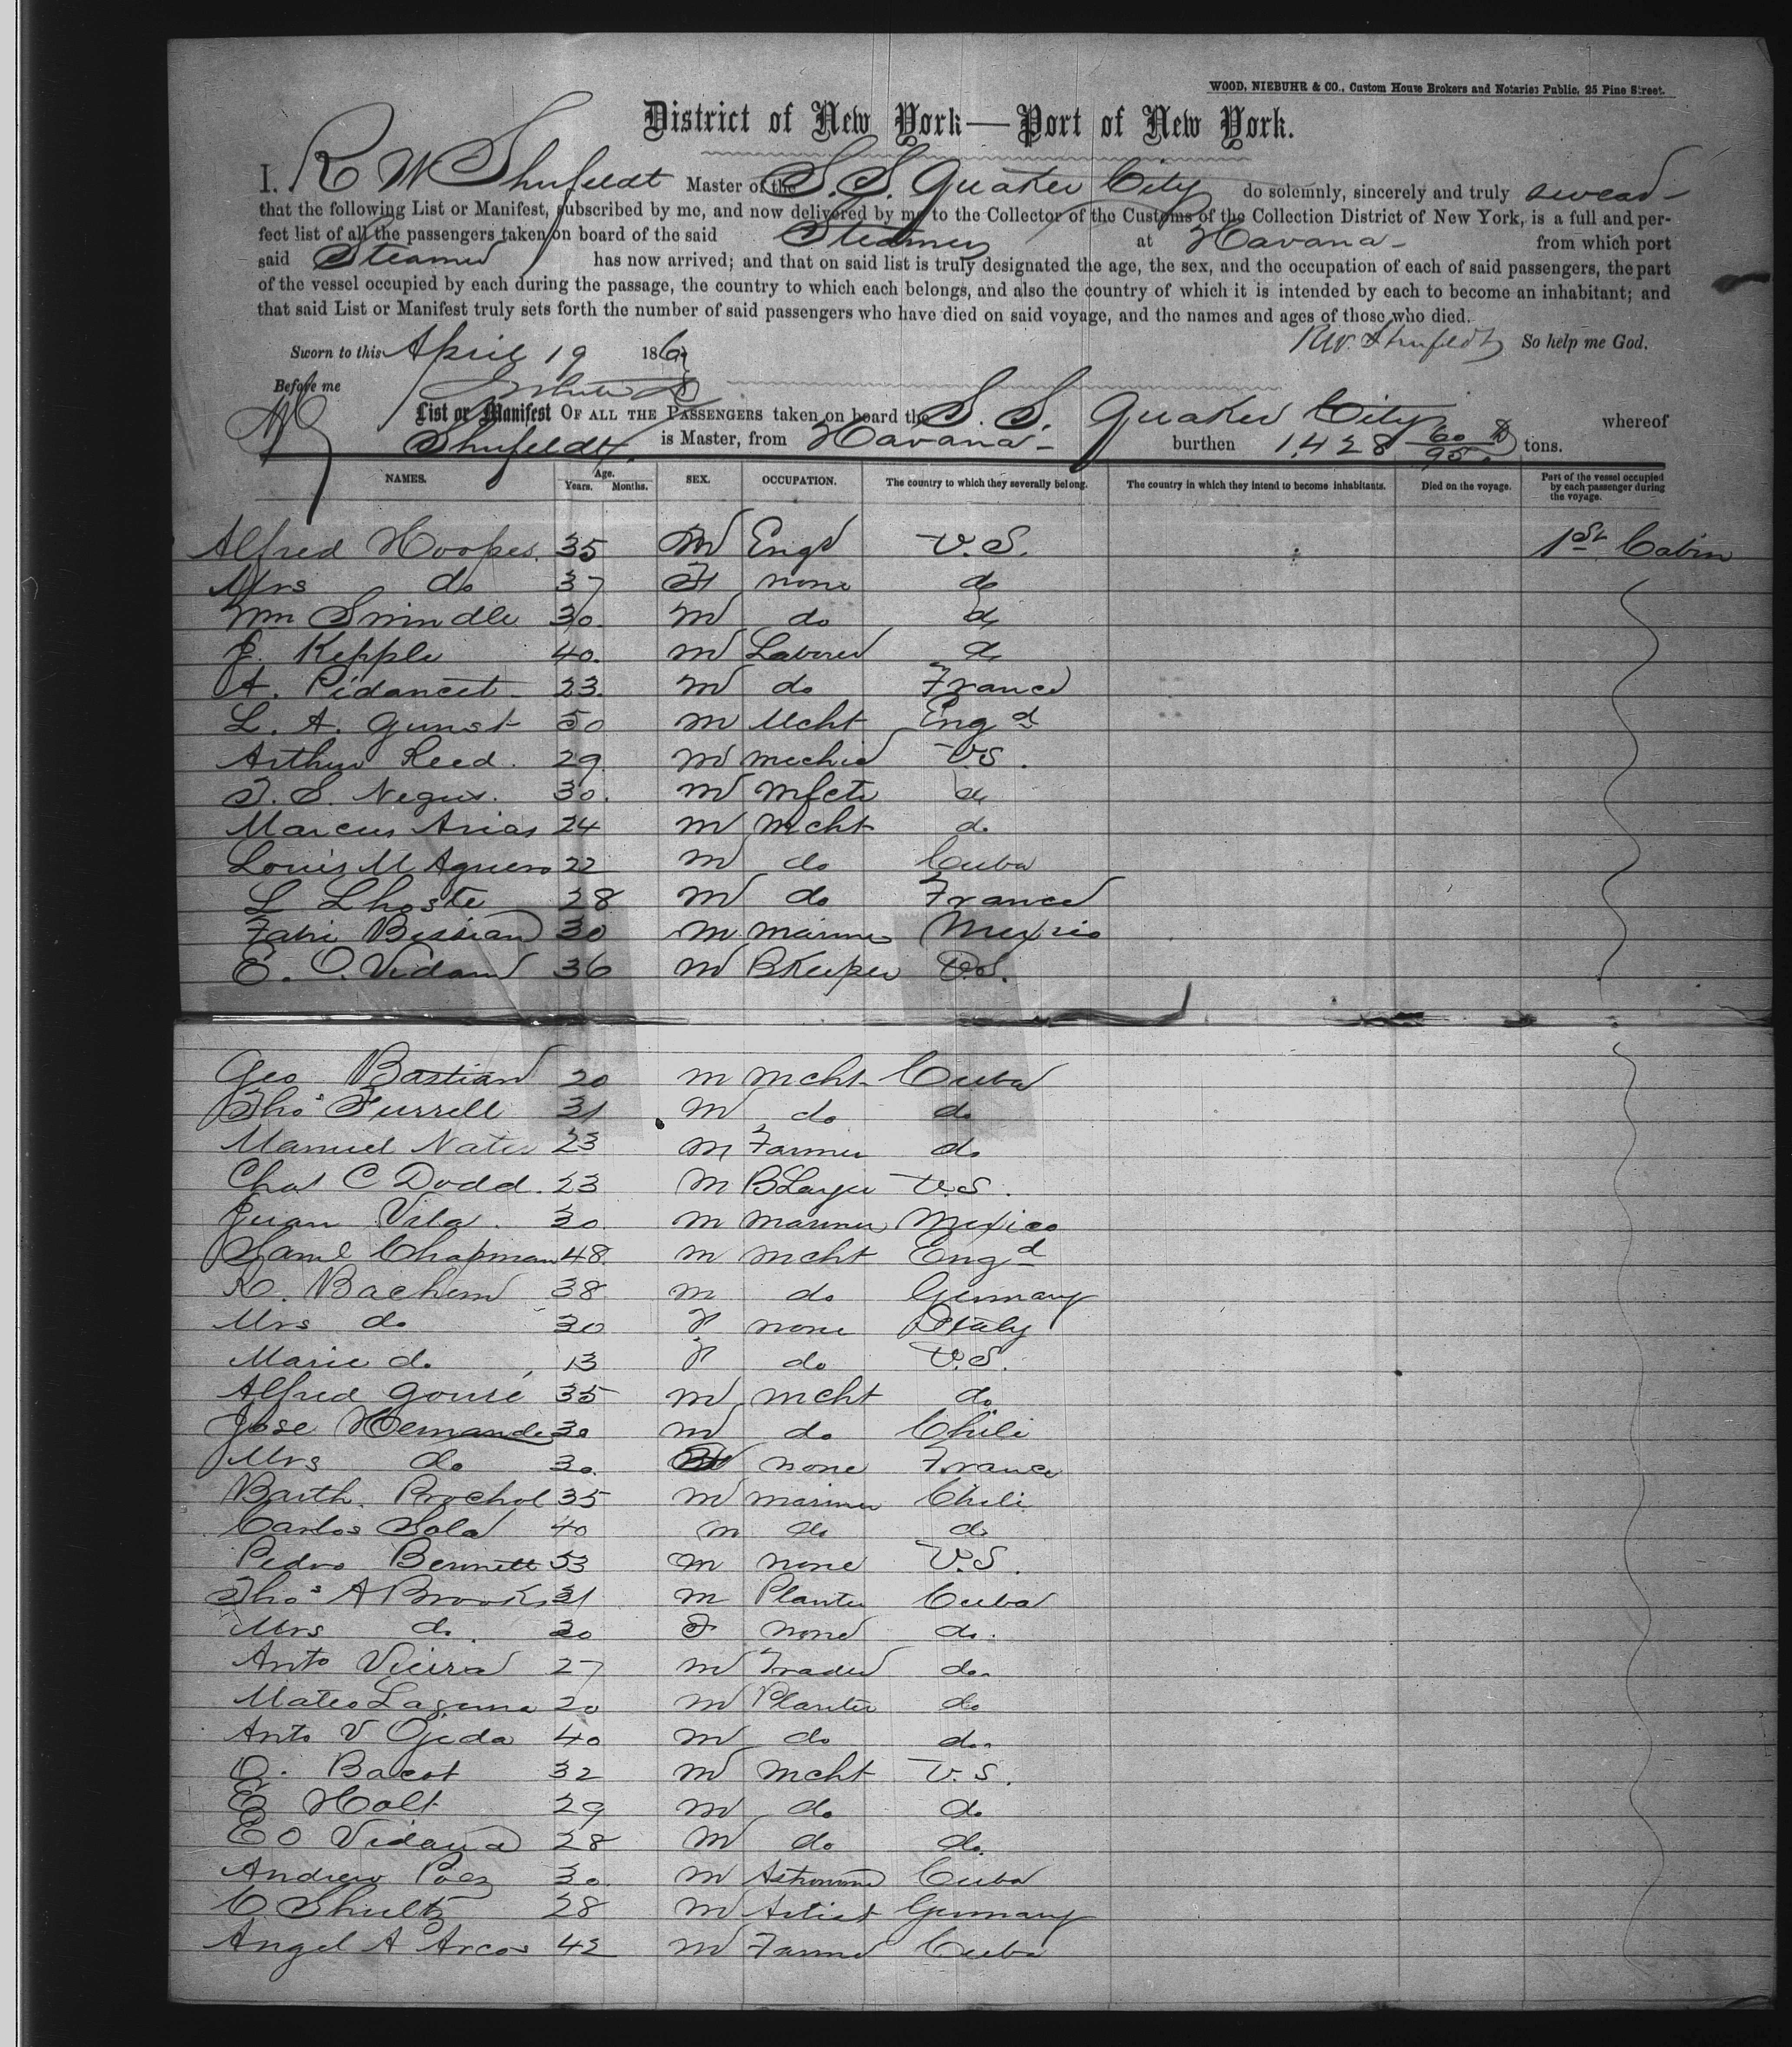 WOOD, NIEBUHR & CO., Custom House Brokers and Notaries Public, 25 Pine Street.
District of New York—Port of New York.
I, R W Shufeldt Master of the S. S. Quaker City do solemnly, sincerely and truly swear
that the following List or Manifest, subscribed by me, and now delivered by me to the Collector of the Customs of the Collection District of New York, is a full and per-
fect list of all the passengers taken on board of the said Steamer at Havana from which port
said Steamer has now arrived; and that on said list is truly designated the age, the sex, and the occupation of each of said passengers, the part
of the vessel occupied by each during the passage, the country to which each belongs, and also the country of which it is intended by each to become an inhabitant; and
that said List or Manifest truly sets forth the number of said passengers who have died on said voyage, and the names and ages of those who died.
Sworn to this April 19 186 R W Shufeldt So help me God.
Before me
List or Manifest OF ALL THE PASSENGERS taken on board the S. S. Quaker City whereof
Shufeldt is Master, from Havana burthen 1428 60/95 tons.
NAMES. Age. Years. Months. SEX. OCCUPATION. The country to which they severally belong. The country in which they intend to become inhabitants. Died on the voyage. Part of the vessel occupied by each passenger during the voyage.
Alfred Hoopes 35 M Engr U.S. 1st Cabin
Mrs do 37 F none do
Wm Swindle 30. M do do
J. Kepple 40. M Laborer do
A. Pidancet 23. M do France
L. A. Gunst 50 M Mcht Engd
Arthur Reed. 29 M mechic U.S.
T. S. Negus. 30. M Mfctr do
Marcus Arias 24 M Mcht do
Louis M Aguero 22 M do Cuba
L Lhoste 28 M do France
Bessian 30 M mariner Mexico
E. O. Vidaud 36 M BKeeper U.S.
Geo Bastian 20 M Mcht Cuba
Thos Furrell 31 M do do
Manuel 23 M Farmer do
Chas C Dodd. 23 M BLayer U.S.
Juan Vila. 30. M mariner Mexico
Saml Chapman 48. M Mcht Engd
Bachem 38 M do Germany
Mrs do 30 F. none Italy
Marie do 13 F do U.S.
Alfred Gouré 35 M Mcht do
Jose Hernande 30 M do Chili
Mrs do 30. F none France
Barth. Prochol 35 M mariner Chili
Carlos Sola 40 M do do
Pedro Bennett 53 M none U.S.
Thos A Brooks 31 M Planter Cuba
Mrs do. 30 F none do.
Anto Vieira 27 M Trader do
Mateo Laguna 20 M Planter do
Anto V Ojeda 40 M do do
O. Bacot 32 M Mcht U.S.
E Holt 29 M do do
E O Vidaud 28 M do do
Andrew Paez 30. M Astronomr Cuba
C. Shultz 28 M Artist Germany
Angel A Arcos 42 M Farmer Cuba